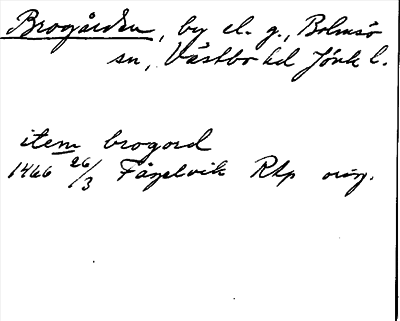 Brogården, by el. g., Bolmsö
sn, Västbo hd Jönk l.
item brogord
1466 26/3 Fågelvik Rkp orig.